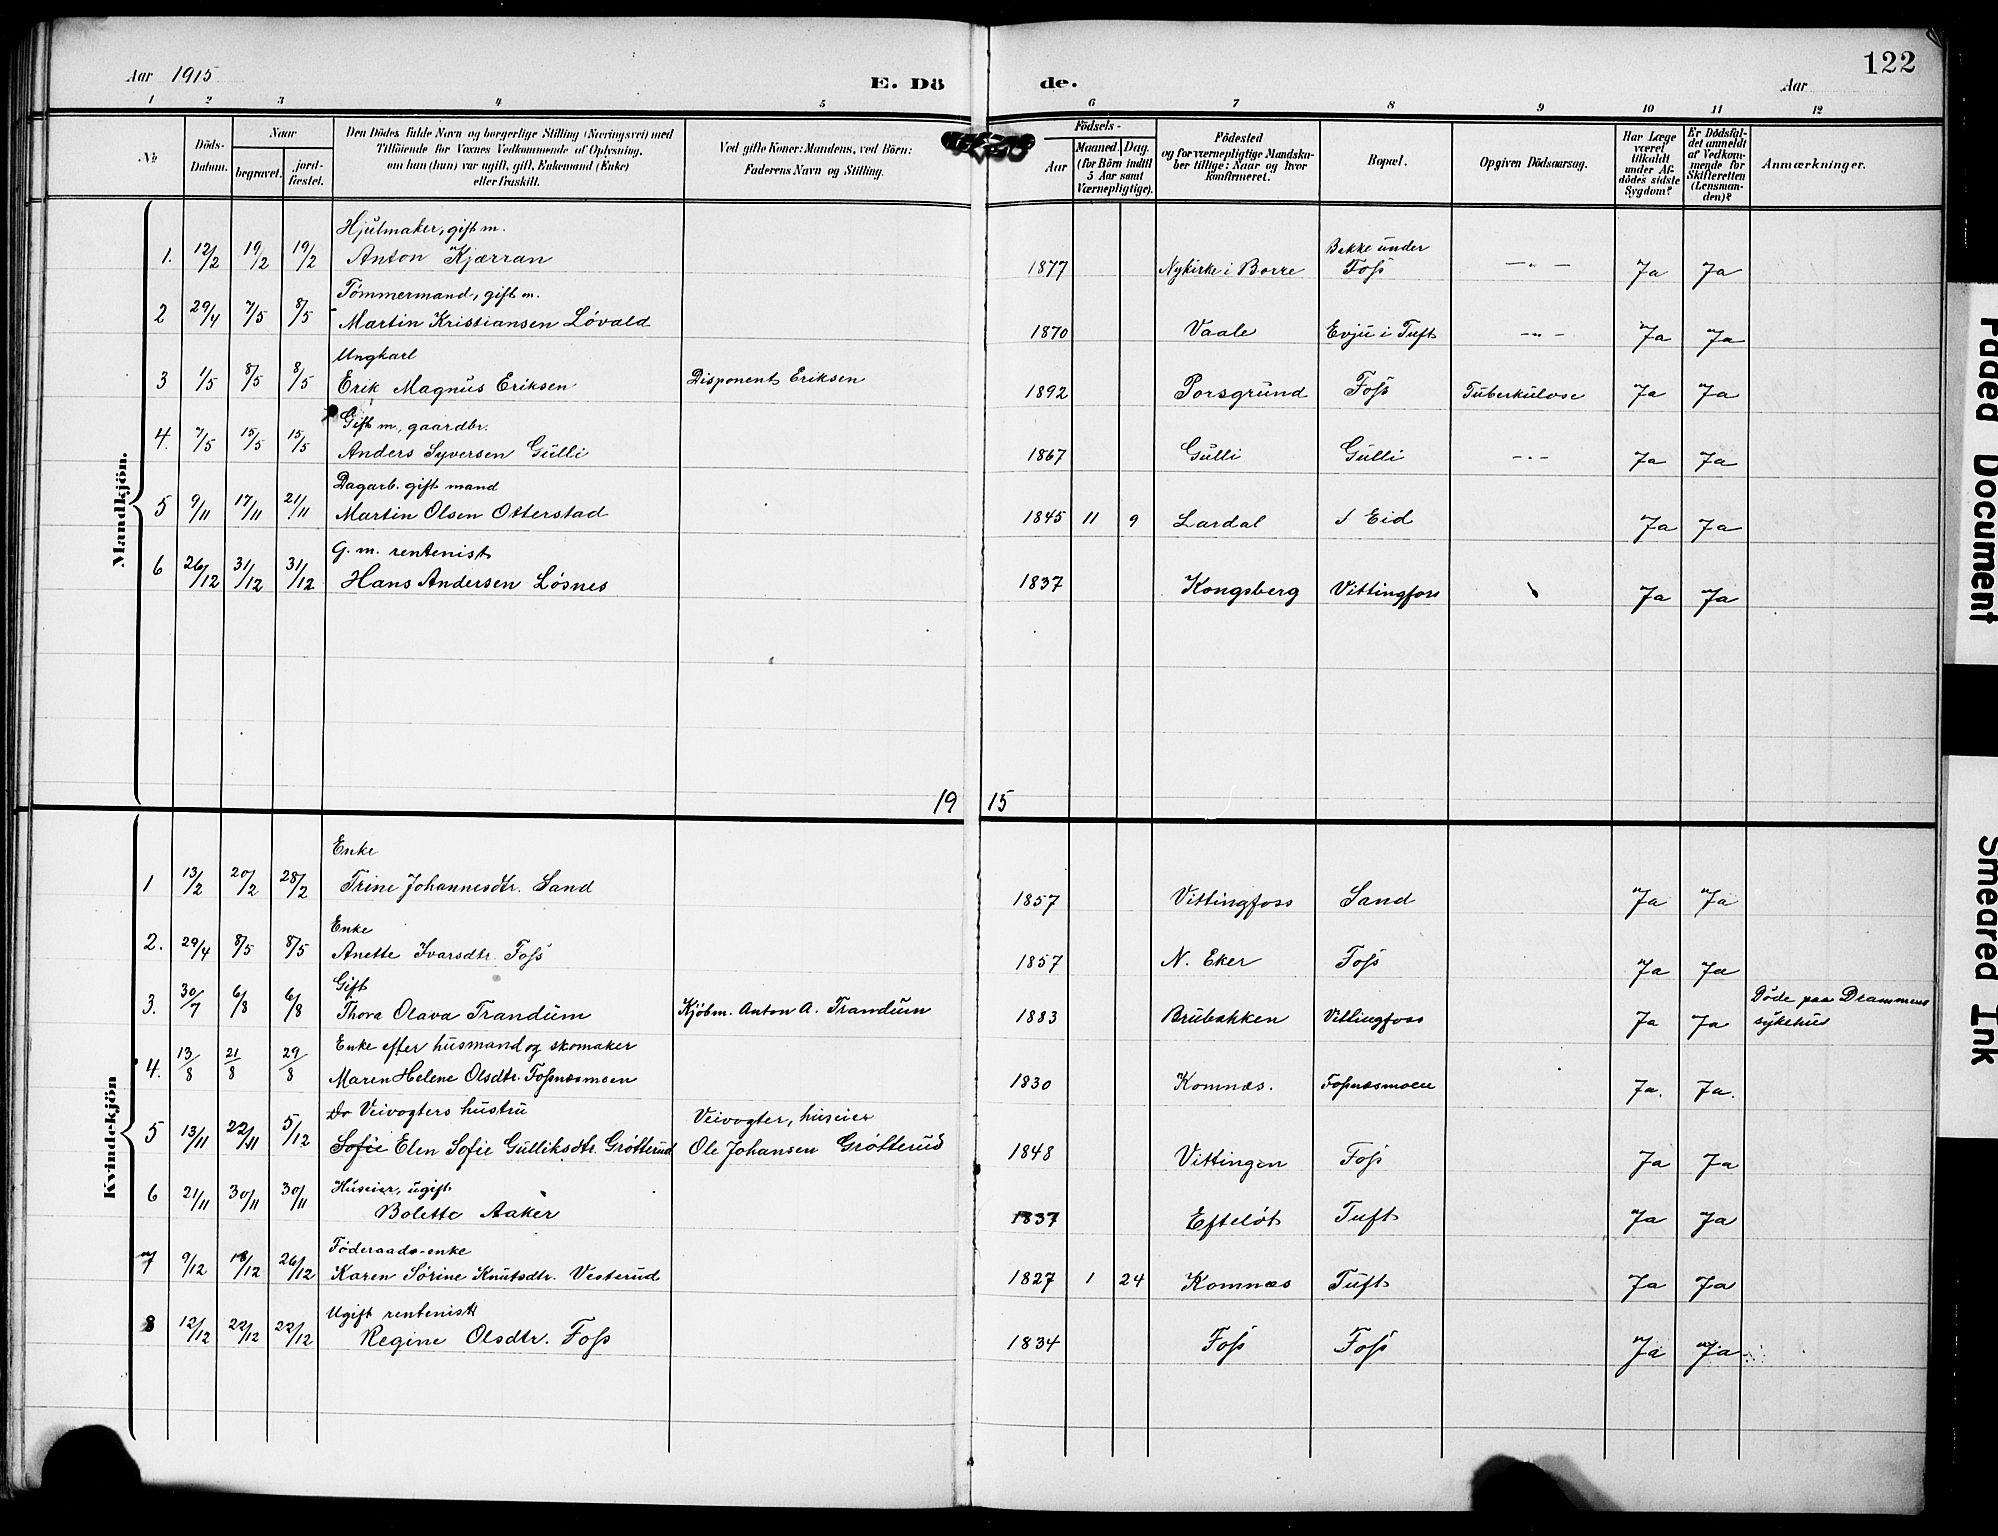 Aar 1915
E. Dö
de.
Aar
122
1 2 3 4 5 6 7 8 9 10 11 12
No
Döds-
Datum.
Naar
begravet.
jord-
fæstet.
Den Dödes fulde Navn og borgerlige Stilling (Næringsvei) med
Tilföiende for Voxnes Vedkommende af Oplysning,
om han (hun) var ugift, gift, Enkemand (Enke)
eller fraskilt.
Ved gifte Koner: Mandens, ved Börn:
Faderens Navn og Stilling.
Födsels-
Aar
Maaned. Dag.
(for Börn indtil
5 Aar samt
Værnepligtige).
Födested
og for værnepligtige Mandska-
ber tillige: Naar og hvor
konfirmeret.
Bopæl.
Opgiven Dödsaarsag.
Har Læge
været
tilkaldt
under Af-
dödes sidste
Sygdom?
Er Dödsfal-
det anmeldt
af Vedkom-
mende for
Skifteretten
(Lensman-
den)?
Anmærkninger.
Mandkjön.
Hjulmaker, gift m. Bakke under
1. 12/2 19/2 19/2 Anton Kjærran 1877 Nykirke i Borre Foss — " — Ja Ja
Tømmermand, gift m.
2 29/4 7/5 8/5 Martin Kristiansen Løvald 1870 Vaale Evju i Tuft — " — Ja Ja
Ungkarl
3 1/5 8/5 8/5 Erik Magnus Eriksen Disponent Eriksen 1892 Porsgrund Foss Tuberkulose Ja Ja
Gift m., gaardbr.
4. 7/5 15/5 15/5 Anders Syversen Gulli 1867 Gulli Gulli — " — Ja Ja
Dagarb. gift mand
5 9/11 17/11 21/11 Martin Olsen Otterstad 1845 11 9 Lardal S Eid Ja Ja
G. m. rentenist
6 26/12 31/12 31/12 Hans Andersen Løsnes 1837 Kongsberg Vittingfoss Ja Ja
19 15
Kvindekjön
Enke
1 13/2 20/2 28/2 Trine Johannesdtr. Sand 1857 Vittingfoss Sand Ja Ja
Enke
2. 29/4 8/5 8/5 Anette Ivarsdtr. Foss 1857 N. Eker Foss Ja Ja
Gift Døde paa Drammens
3. 30/7 6/8 6/8 Thora Olava Trandum Kjøbm. Anton A. Trandum 1883 Brubakken Vittingfoss Ja Ja sykehus
Enke efter husmand og skomaker
4. 13/8 21/8 29/8 Maren Helene Olsdtr. Fossnæsmoen 1830 Komnæs. Fossnæsmoen Ja. Ja.
Do Veivogters hustru Veivogter, huseier
5 13/11 22/11 5/12 Sofie Elen Sofie Gulliksdtr. Grøtterud Ole Johansen Grøtterud 1848 Vittingen Foss Ja Ja
Huseier, ugift
6 21/11 30/11 30/11 Bolette Aaker 1837 Efteløt Tuft Ja Ja
Føderaads-enke
7 9/12 18/12 26/12 Karen Sørine Knutsdtr. Vesterud 1827 1 24 Komnæs Tuft Ja Ja
Ugift rentenist
8 12/12 22/12 22/12 Regine Olsdtr. Foss 1834 Foss Foss Ja Ja
Faded Document
Smeared Ink